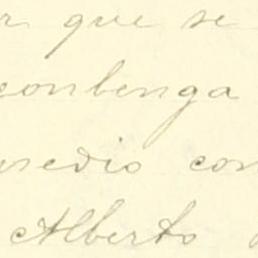 r que se
conbenga
medio con
Alberto